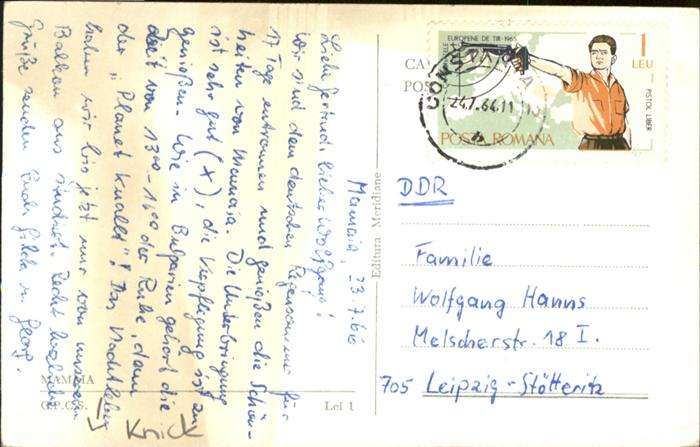 Mamaia, 23.7.66
Liebe Gertrud! Lieber Wolfgang!
Wir sind dem deutschen Regensommer für
17 Tage entronnen und genießen die Schön-
heiten von Mamaia. Die Unterbringung
ist sehr gut (X), die Verpflegung ist zu
genießen. Wie in Bulgarien gehört die
Zeit von 13⁰⁰-16⁰⁰ der Ruhe, denn
der "Planet knallt"! Das Nachtleben
haben wir bis jetzt nur von unserem
Balkon aus studiert. Recht herzliche
Grüße senden Euch Gilda u. Georg.
MAMAIA
C.P.C.S.
Lei 1
Knick
Editura Meridiane
EUROPENE DE TIR-1965
1
LEU
PISTOL LIBER
POSTA ROMANA
CONSTANTA
24.7.64.11
DDR
Familie
Wolfgang Hanns
Melscherstr. 18 I.
705 Leipzig-Stötteritz